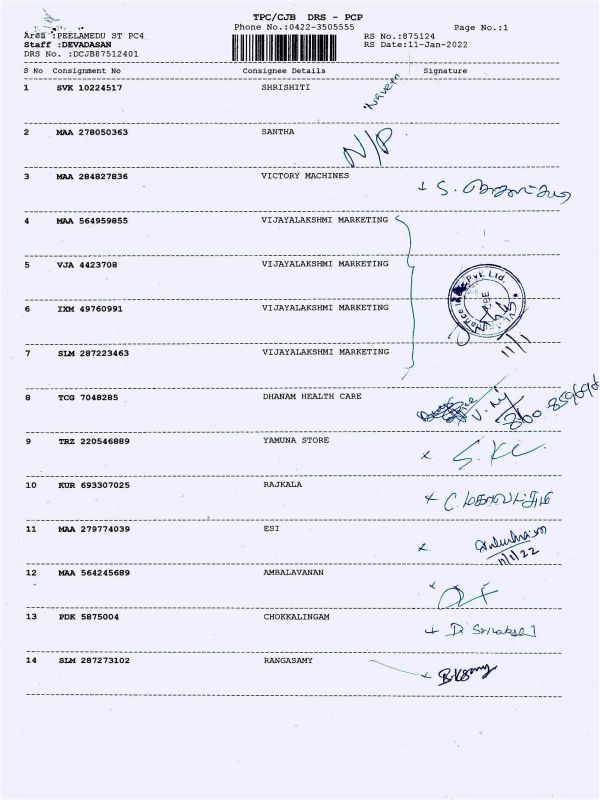 TPC/CJB DRS - PCP
Phone No.:0422-3505555 Page No.:1
Area :PEELAMEDU ST PC4 RS No.:875124
Staff :DEVADASAN RS Date:11-Jan-2022
DRS No. :DCJB87512401
S No Consignment No Consignee Details Signature
1 SVK 10224517 SHRISHITI Naveen
2 MAA 278050363 SANTHA N/P
3 MAA 284827836 VICTORY MACHINES S.
4 MAA 564959855 VIJAYALAKSHMI MARKETING
5 VJA 4423708 VIJAYALAKSHMI MARKETING
Pvt. Ltd.
6 IXM 49760991 VIJAYALAKSHMI MARKETING
11/1
7 SLM 287223463 VIJAYALAKSHMI MARKETING
8 TCG 7048285 DHANAM HEALTH CARE
9 TRZ 220546889 YAMUNA STORE
10 KUR 693307025 RAJKALA C.
11 MAA 279774039 ESI
11/1/22
12 MAA 564245689 AMBALAVANAN
13 PDK 5875004 CHOKKALINGAM
14 SLM 287273102 RANGASAMY